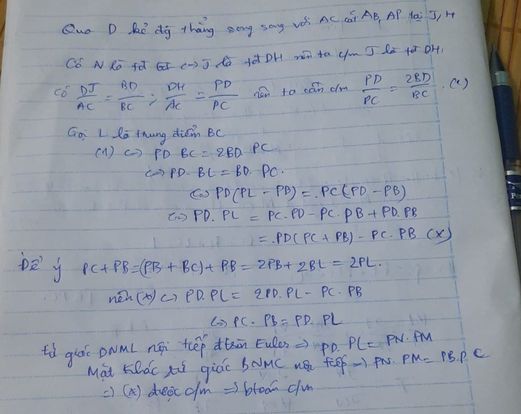 Qua D kẻ đg thẳng song song với AC cắt AB, AP tại J, H
Có N là tđ EF <=> J là tđ DH nên ta c/m J là tđ DH.
Có DJ/AC = BD/BC ; DH/AC = PD/PC nên ta cần c/m PD/PC = 2BD/BC. (1)
Gọi L là trung điểm BC
(1) <=> PD. BC = 2BD. PC
<=> PD. BL = BD. PC.
<=> PD(PL - PB) = PC(PD - PB)
<=> PD. PL = PC. PD - PC. PB + PD. PB
= PD(PC + PB) - PC. PB (*)
Để ý PC + PB = (PB + BC) + PB = 2PB + 2BL = 2PL.
nên (*) <=> PD. PL = 2PD. PL - PC. PB
<=> PC. PB = PD. PL
tứ giác DNML nội tiếp đtròn Euler => PD. PL = PN. PM
Mặt khác tứ giác BNMC nội tiếp => PN. PM = PB. PC
=> (*) được c/m => btoán c/m